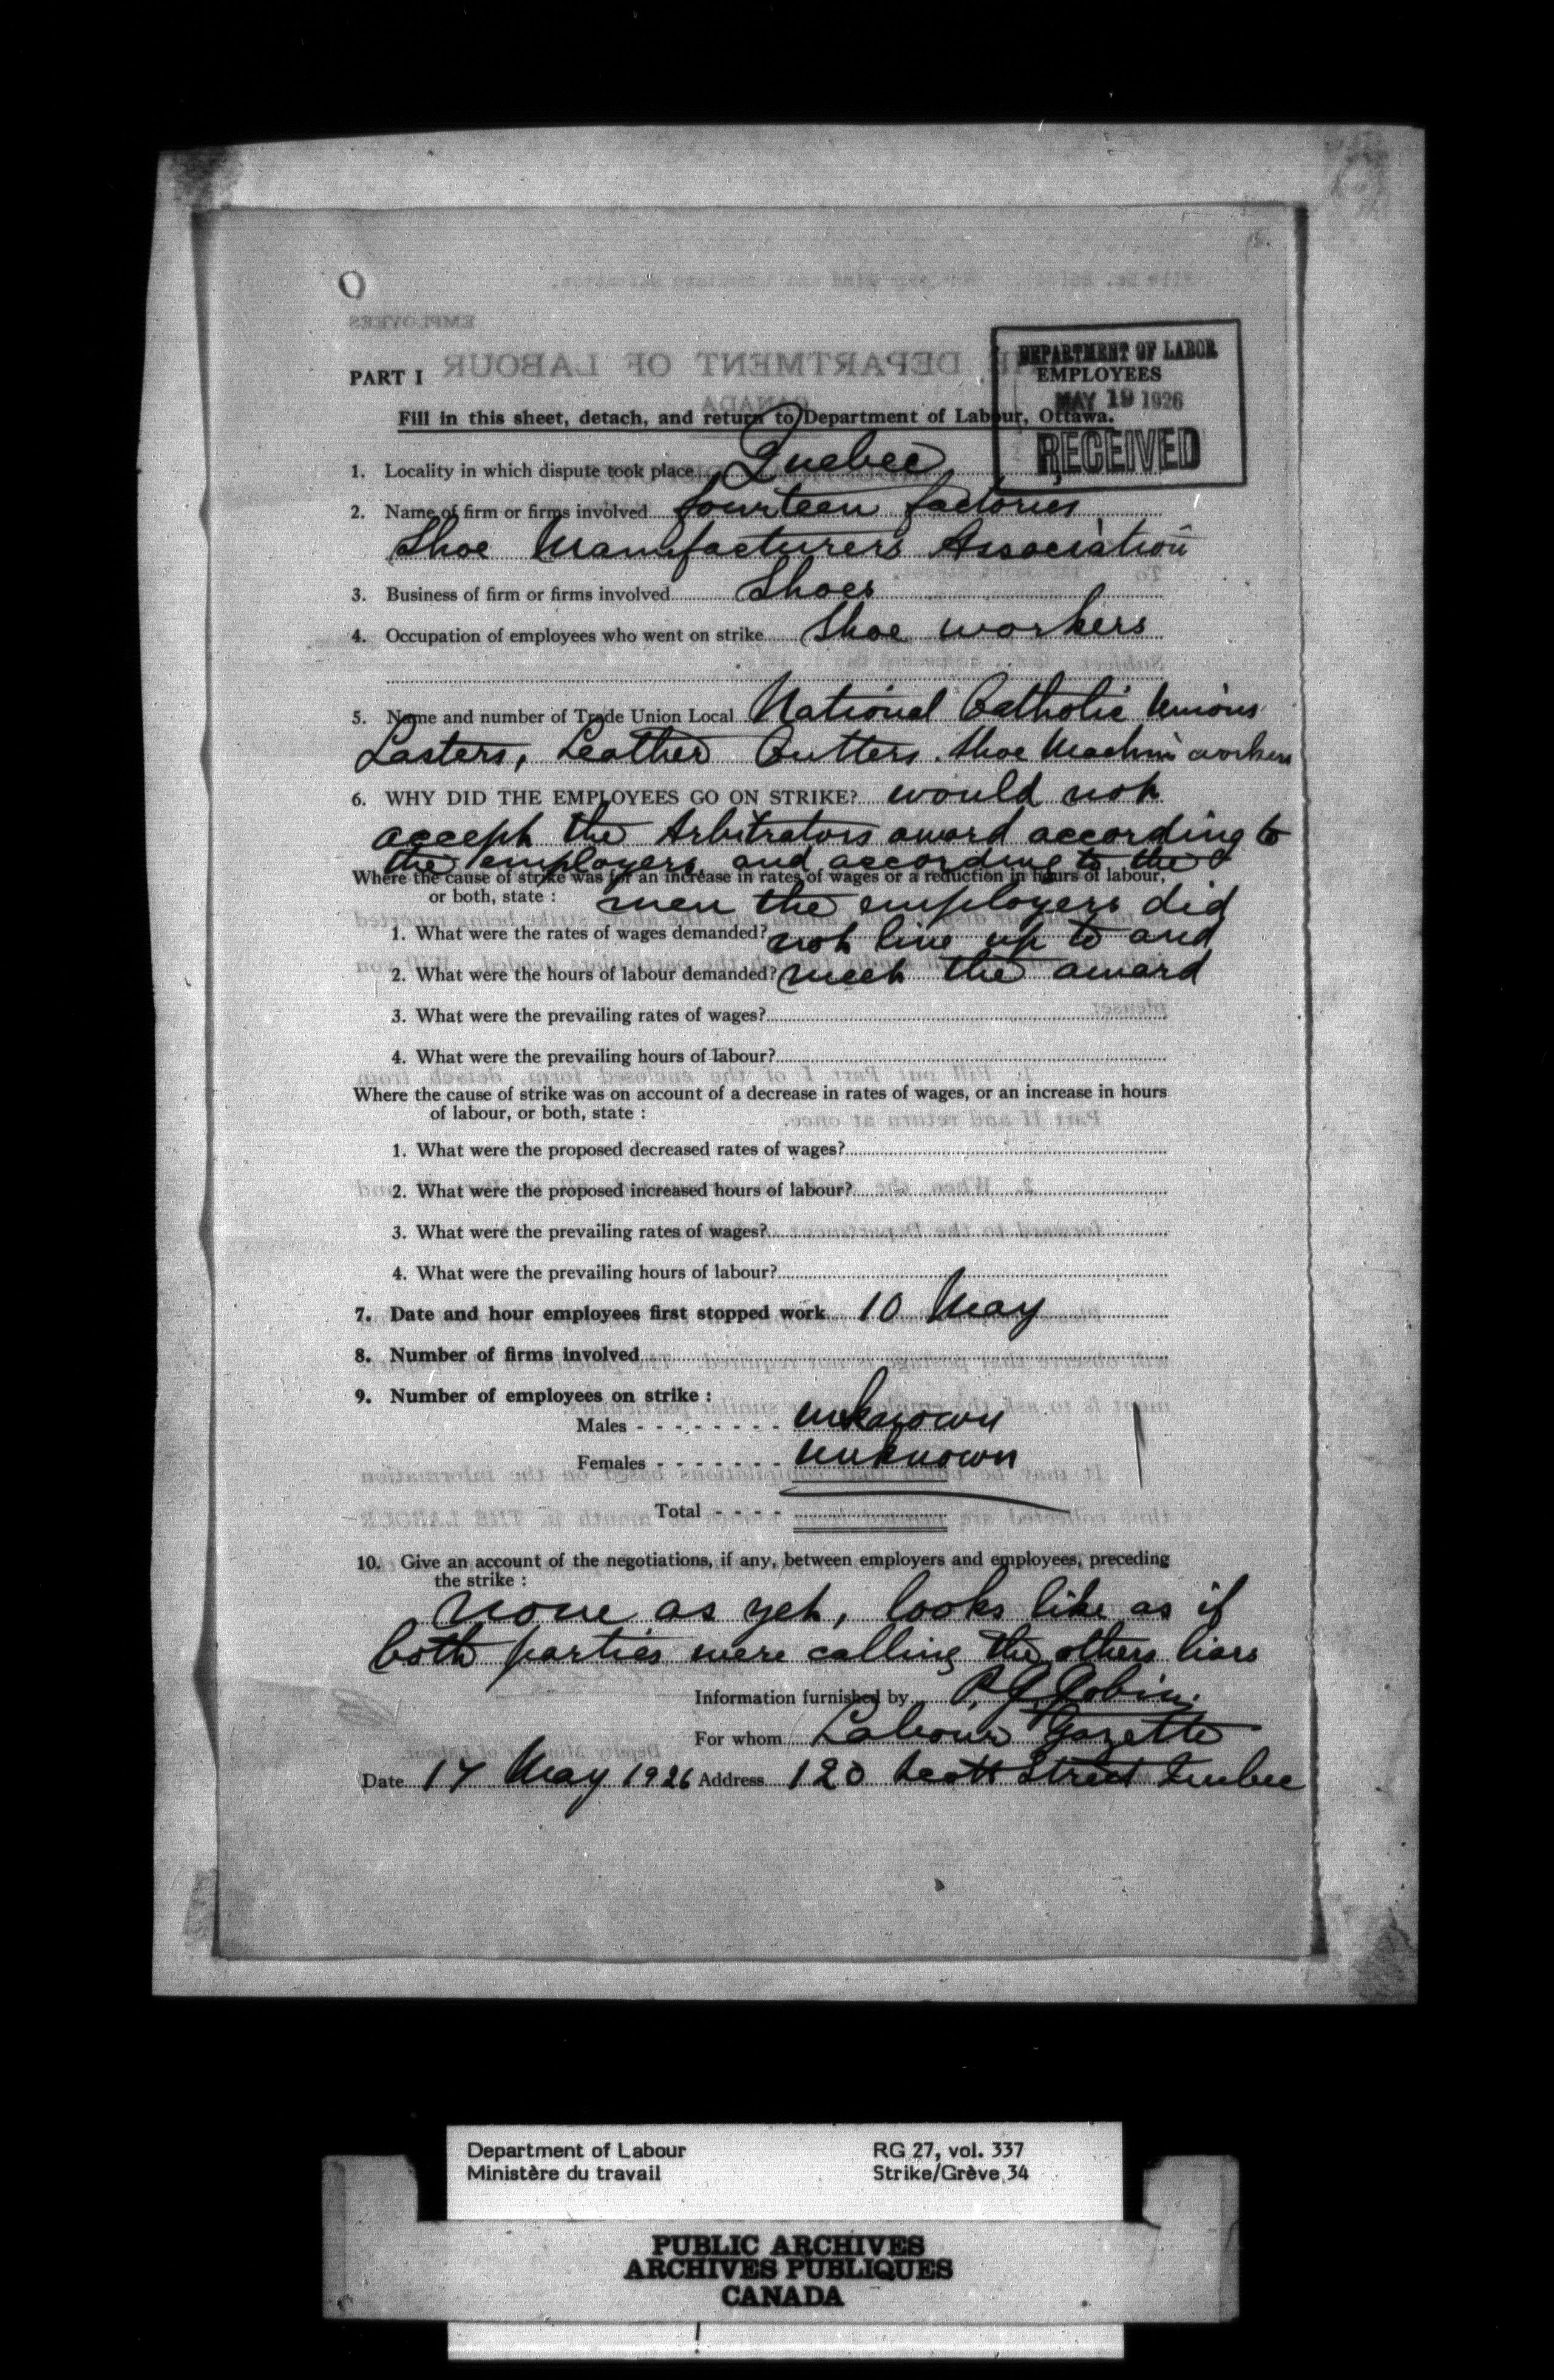 DEPARTMENT OF LABOR
EMPLOYEES
MAY 19 1926
RECEIVED
PART I
Fill in this sheet, detach, and return to Department of Labour, Ottawa.
1. Locality in which dispute took place Quebec
2. Name of firm or firms involved fourteen factories
Shoe Manufacturers Association
3. Business of firm or firms involved Shoes
4. Occupation of employees who went on strike Shoe workers
5. Name and number of Trade Union Local National Catholic Unions
Lasters, Leather Cutters. Shoe Machin workers
6. WHY DID THE EMPLOYEES GO ON STRIKE? would not
accept the Arbitrators award according to
the employers, and according to the
Where the cause of strike was for an increase in rates of wages or a reduction in hours of labour,
or both, state : men the employers did
1. What were the rates of wages demanded? not live up to and
2. What were the hours of labour demanded? meet the award
3. What were the prevailing rates of wages?
4. What were the prevailing hours of labour?
Where the cause of strike was on account of a decrease in rates of wages, or an increase in hours
of labour, or both, state :
1. What were the proposed decreased rates of wages?
2. What were the proposed increased hours of labour?
3. What were the prevailing rates of wages?
4. What were the prevailing hours of labour?
7. Date and hour employees first stopped work 10 May
8. Number of firms involved
9. Number of employees on strike :
Males - - - - - - - - unknown
Females - - - - - - - unknown
Total - - - -
10. Give an account of the negotiations, if any, between employers and employees, preceding
the strike :
none as yet, looks like as if
both parties were calling the others liars
Information furnished by P. J. Jobin.
For whom Labour Gazette
Date 17 May 1926 Address 120 Scott Street Quebec
Department of Labour RG 27, vol. 337
Ministère du travail Strike/Grève 34
PUBLIC ARCHIVES
ARCHIVES PUBLIQUES
CANADA